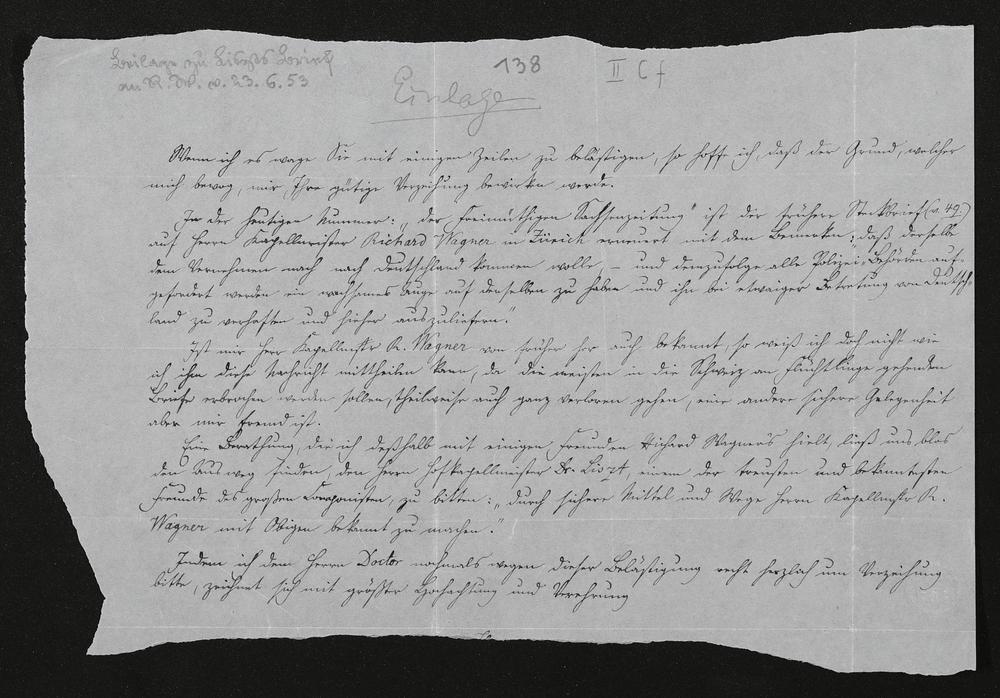 Beilage zu Liszts Brief
an R. W. v. 23. 6. 53
138
II C f
Einlage
Wenn ich es wage Sie mit einigen Zeilen zu belästigen, so hoffe ich, daß der Grund, welcher
mich bewog, mir Ihre gütige Verzeihung bewirken werde.
In der heutigen Nummer: „der Freimüthigen Sachsenzeitung" ist der frühere Steckbrief (v. 49)
auf Herrn Kapellmeister Richard Wagner in Zürich erneuert mit dem Bemerken: „daß derselbe
dem Vernehmen nach nach Deutschland kommen wolle, – und demzufolge alle Polizei-Behörden auf-
gefordert werden ein wachsames Auge auf denselben zu haben und ihn bei etwaiger Betretung von Deutsch-
land zu verhaften und hieher auszuliefern."
Ist mir Herr Kapellmstr R. Wagner von früher her auch bekannt, so weiß ich doch nicht wie
ich ihm diese Nachricht mittheilen kann, da die meisten in die Schweiz an Flüchtlinge gehenden
Briefe erbrochen werden sollen, theilweise auch ganz verloren gehen, eine andere sichere Gelegenheit
aber mir fremd ist.
Eine Berathung, die ich deßhalb mit einigen Freunden Richard Wagner's hielt, ließ uns blos
den Ausweg finden, den Herrn Hofkapellmeister Dr. Liszt, einem der treusten und bekanntesten
Freunde des großen Componisten, zu bitten: „durch sichere Mittel und Wege Herrn Kapellmstr R.
Wagner mit Obigen bekannt zu machen."
Indem ich dem Herrn Doctor nochmals wegen dieser Belästigung recht herzlich um Verzeihung
bitte, zeichnet sich mit größter Hochachtung und Verehrung